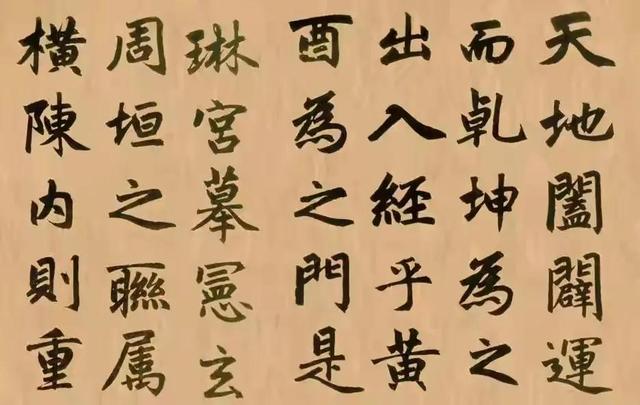 天地闔闢運
而乹坤為之
出入經乎黄
酉為之門是
琳宮摹憲玄
周垣之聯属
横陳内則重